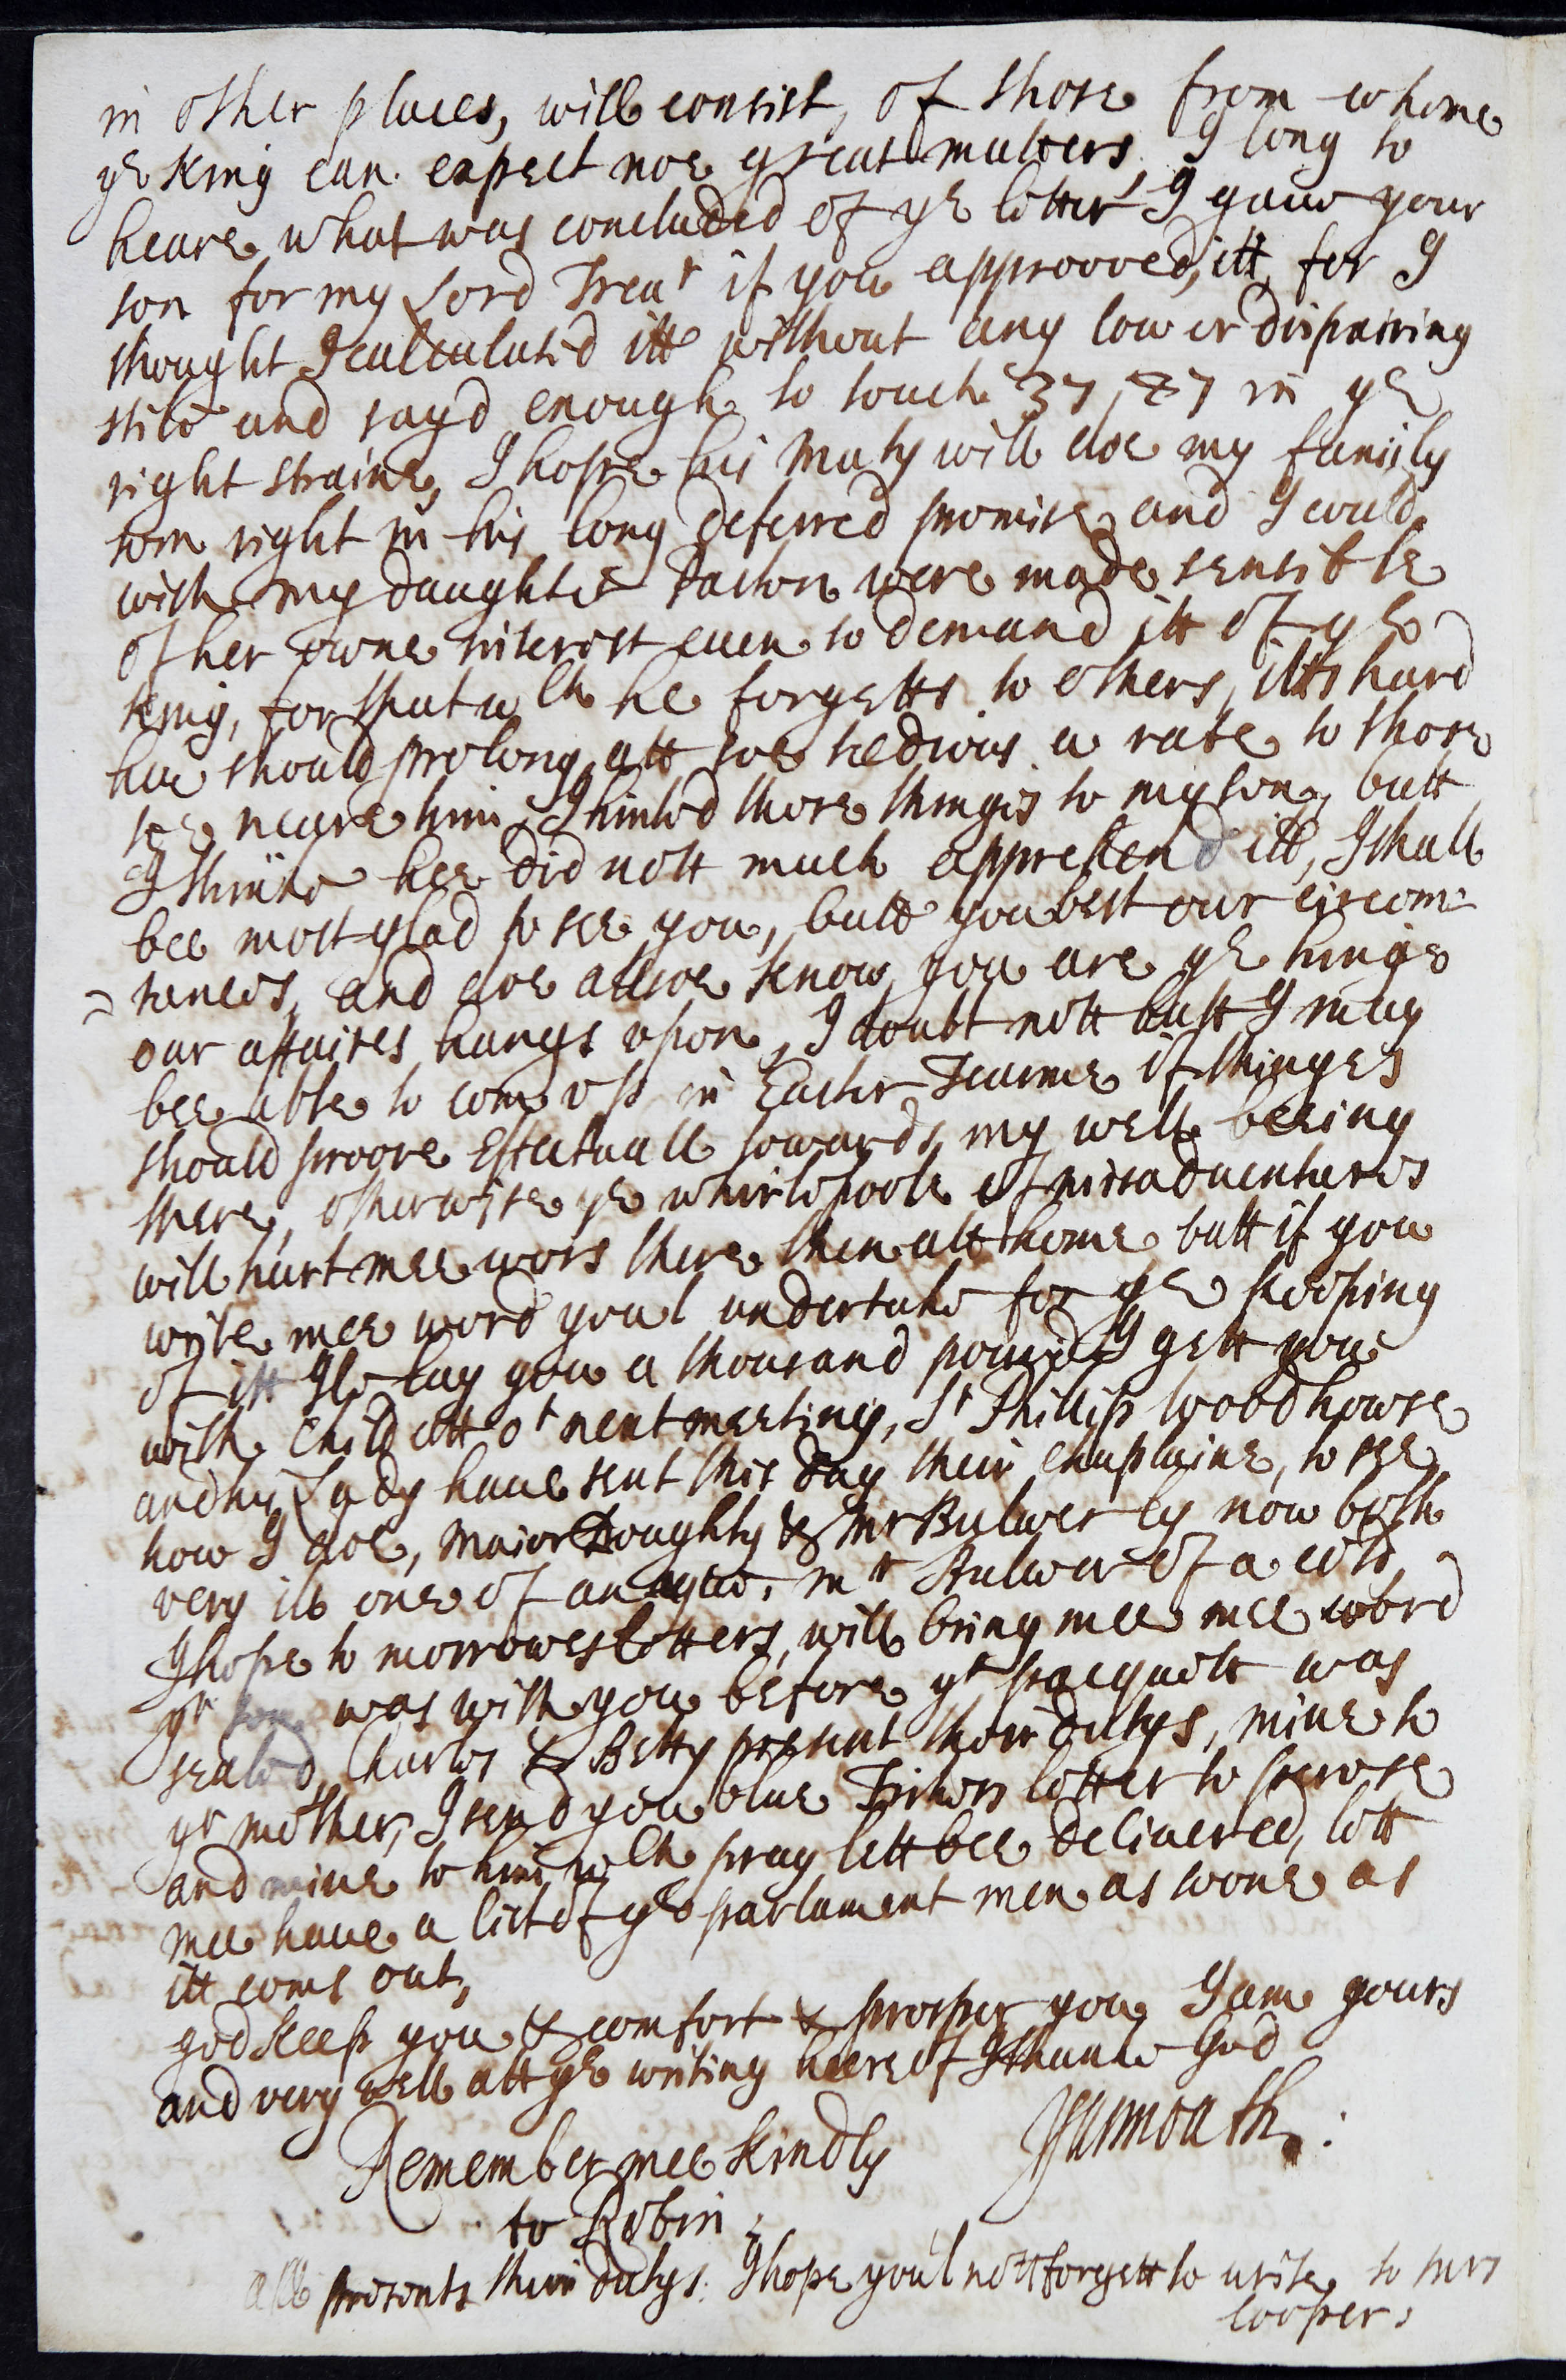 in other places, will consist, of those from whome
ye King can expect noe great matters, I long to
heare what was concluded of ye letter I gaue your
son for my Lord Trear if you approoved itt, for I
thought I calculated itt without any low or dispairing
stile and sayd enough to touch 37, 27 in ye
right straine, I hope his Maty will doe my family
som right in his long deferred promise and I could
wish my daughter Paston were made sensible
of her owne interest euen to demand itt of ye
King, for that wch he forgetts to others, itts hard
hee should prolong att soe tedious a rate to those
soe neare him, I hinted those things to my son, butt
I thinke hee did nott much apprehend itt, I shall
bee most glad to see you, butt you best our circom=
=stances, and doe allsoe know you are ye hinge
our affaires hangs vpon, I doubt nott butt I may
bee able to com vp in Easter Tearme if thinges
should proove effectuall towards my well beeing
there, otherwise ye whirlepoole of misaduentures
will hurt mee wors there then att home butt if you
write mee word youl undertake for ye keeping
of itt Ile lay you a thousand pound I gett you
with child att or next meeting, Sr Phillip Woodhowse
and his Lady haue sent this day their chaplaine, to see
how I doe, Maior Doughty & Mr Bulwer ly now both
very ill one of an ague, Mr Bulwer of a cold,
I hope to morrowes letters, will bring mee mee word
yr son was with you before yr pacquett was
sealed, Charles & Betty present their dutys, mine to
yr mother, I send you blue Tritons letter to peruse
and mine to him, wch pray lett bee deliuered, lett
mee haue a list of ye parlament men as soone as
itt coms out,
god keep you & comfort & prosper you I am yours
and very well att ye writing heereof I thanke God
Yarmouth:
Remember mee kindly
to Robin;
all presents their dutys. I hope youl nott forgett to write to Mrs
Cooper,